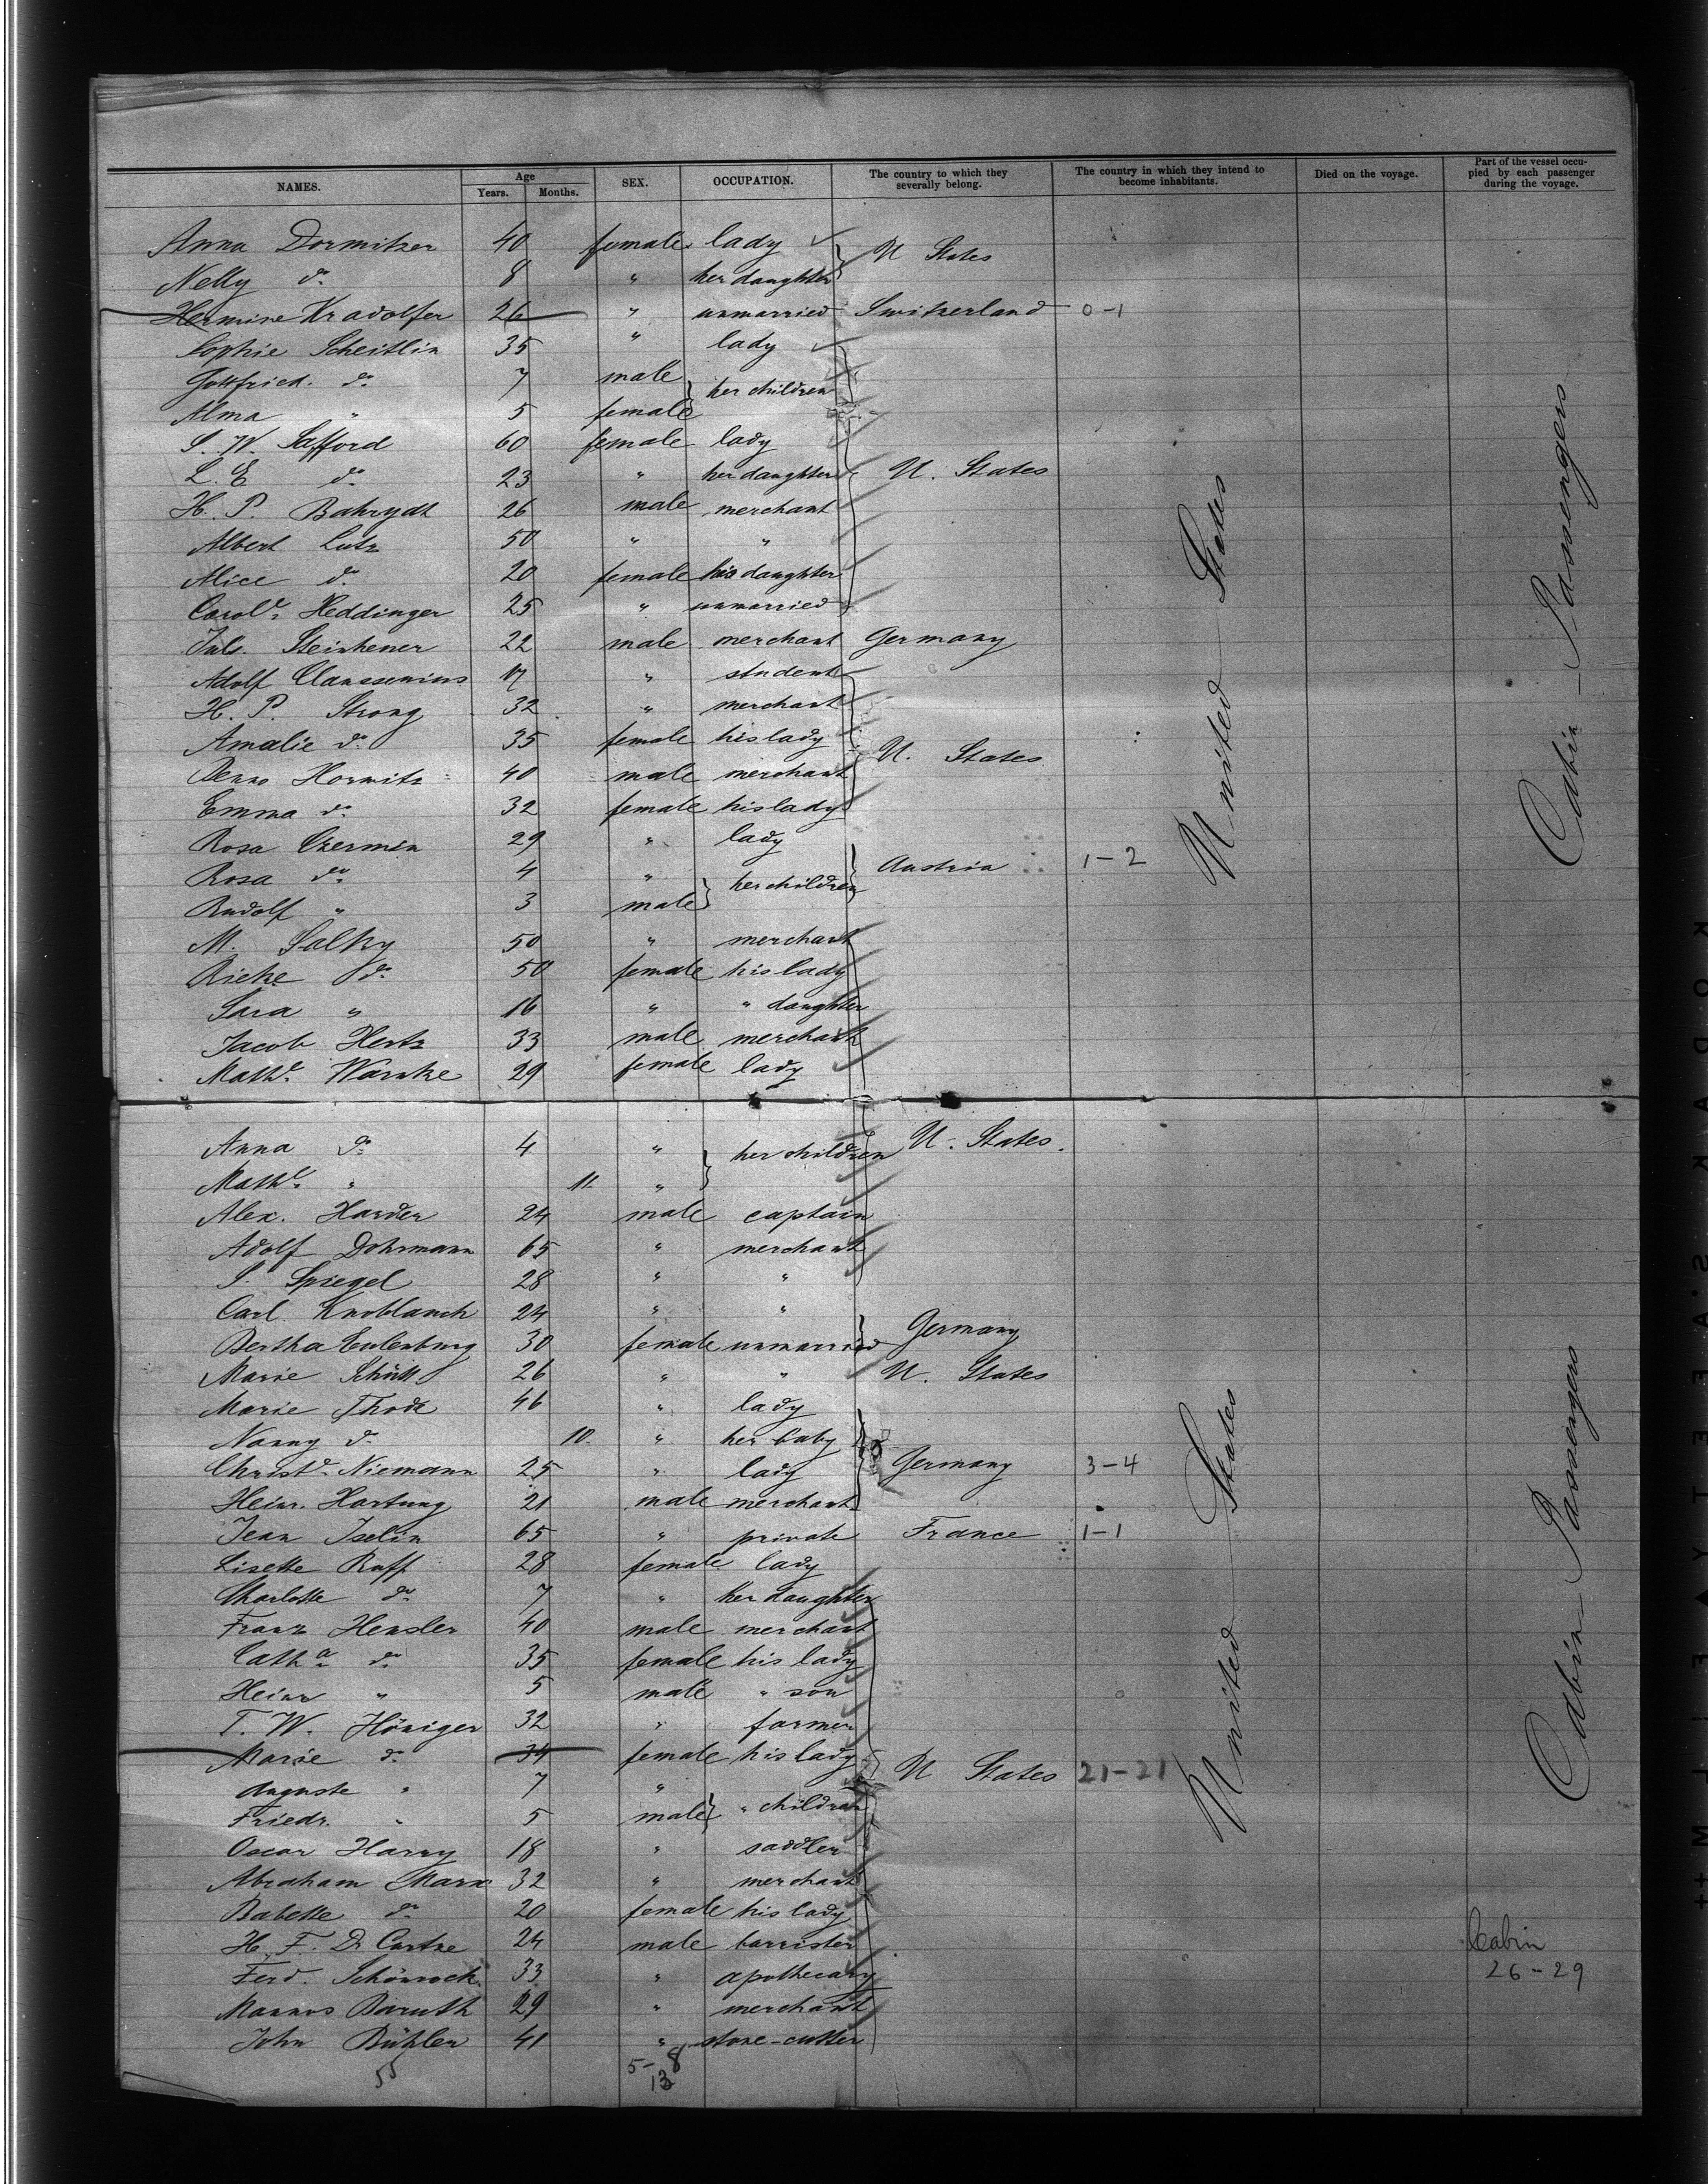 NAMES. Age Years. Months. SEX. OCCUPATION. The country to which they severally belong. The country in which they intend to become inhabitants. Died on the voyage. Part of the vessel occupied by each passenger during the voyage.
Anna Dormitzer 40 female lady
U States
Nelly do 8 " her daughter
Hermine Kradolfer 26 " unmarried Switzerland 0-1
Sophie Scheitlin 35 " lady
Gottfried. do 7 male
her children
Alma " 5 female
S. W. Safford 60 female lady
L. E do 23 " her daughter U. States
H. P. Bahrydt 26 male merchant
Albert Lutz 50 " "
Alice do 20 female his daughter
Carole. Heddinger 25 " unmarried
Jul. Steinhener 22 male merchant Germany
Adolf Claussenius 17 " student
H. P. Strong 32 " merchant
Amalie do 35 female his lady
U. States
Benno Horwitz 40 male merchant
Emma do 32 female his lady
Rosa Czermin 29 " lady
Austria 1-2
Rosa do 4 "
her children
Rudolf " 3 male
M. Salky 50 " merchant
Rieke do 50 female his lady
Sara " 16 " " daughter
Jacob Hertz 33 male merchant
Mathe. Warnke 29 female lady
United States
Cabin-Passengers
Anna do 4 " her children U. States.
Mathe. " 11 "
Alex. Harder 24 male captain
Adolf Dohrmann 65 " merchant
S. Spiegel 28 " "
Carl Knoblauch 24 " "
Germany
Bertha Eulenburg 30 female unmarried
Marie Schütt 26 " " U. States
Marie Thode 46 " lady
Nanny do 10 " her baby
Christe. Niemann 25 " lady Germany 3-4
Heinr. Hartung 21 male merchant
Jean Iselin 65 " private France 1-1
Lisette Ruff 28 female lady
Charlotte do 7 " her daughter
Franz Hensler 40 male merchant
Catha do 35 female his lady
Heinr " 5 male " son
T. W. Höniger 32 " farmer
Marie do 34 female his lady U States 21-21
Auguste " 7 "
" children
Friedr. " 5 male
Oscar Harry 18 " saddler
Abraham Marx 32 " merchant
Babette do 20 female his lady
H. F. D Cartze 24 male barrister
Ferd. Schönrock 33 " apothecary
Mannos Baruth 29 " merchant
John Bühler 41 " stone-cutter
United States
Cabin Passengers
Cabin
26-29
55
5-8
13